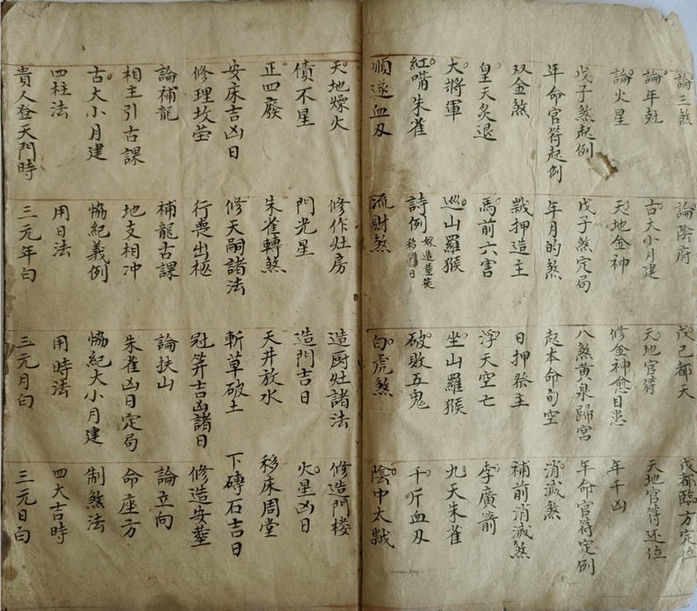 論三煞 論陰府 戊己都天 戊都臨方定位
論年尅 古大小月建 天地官符 天地官符还位
論火星 天地金神 修金神愈目患 年千凶
戊子煞起例 戊子煞定局 八煞黄泉歸宮 年命官符定例
年命官符起例 年月的煞 起本命旬空 消滅煞
双金煞 戥押造主 日押祭主 補前消滅煞
皇天炙退 馬前六害 浮天空亡 李廣箭
大將軍 巡山羅猴 坐山羅猴 九天朱雀
紅嘴朱雀 詩例 破敗五鬼 千斤血刃
順逆血刃 流財煞 白虎煞 陰中太歲
天地燥火 修作灶房 造厨灶諸法 修造門楼
債不星 門光星 造門吉日 火星凶日
正四廢 朱雀轉煞 天井放水 移床周堂
安床吉凶日 修天嗣諸法 斬草破土 下磚石吉日
修理坟茔 行喪出柩 冠笄吉凶諸日 修造安塟
論補龍 補龍古課 論扶山 論立向
相主引古課 地支相冲 朱雀凶日定局 命座方
古大小月建 恊紀義例 恊紀大小月建 制煞法
四柱法 用日法 用時法 四大吉時
貴人登天門時 三元年白 三元月白 三元日白